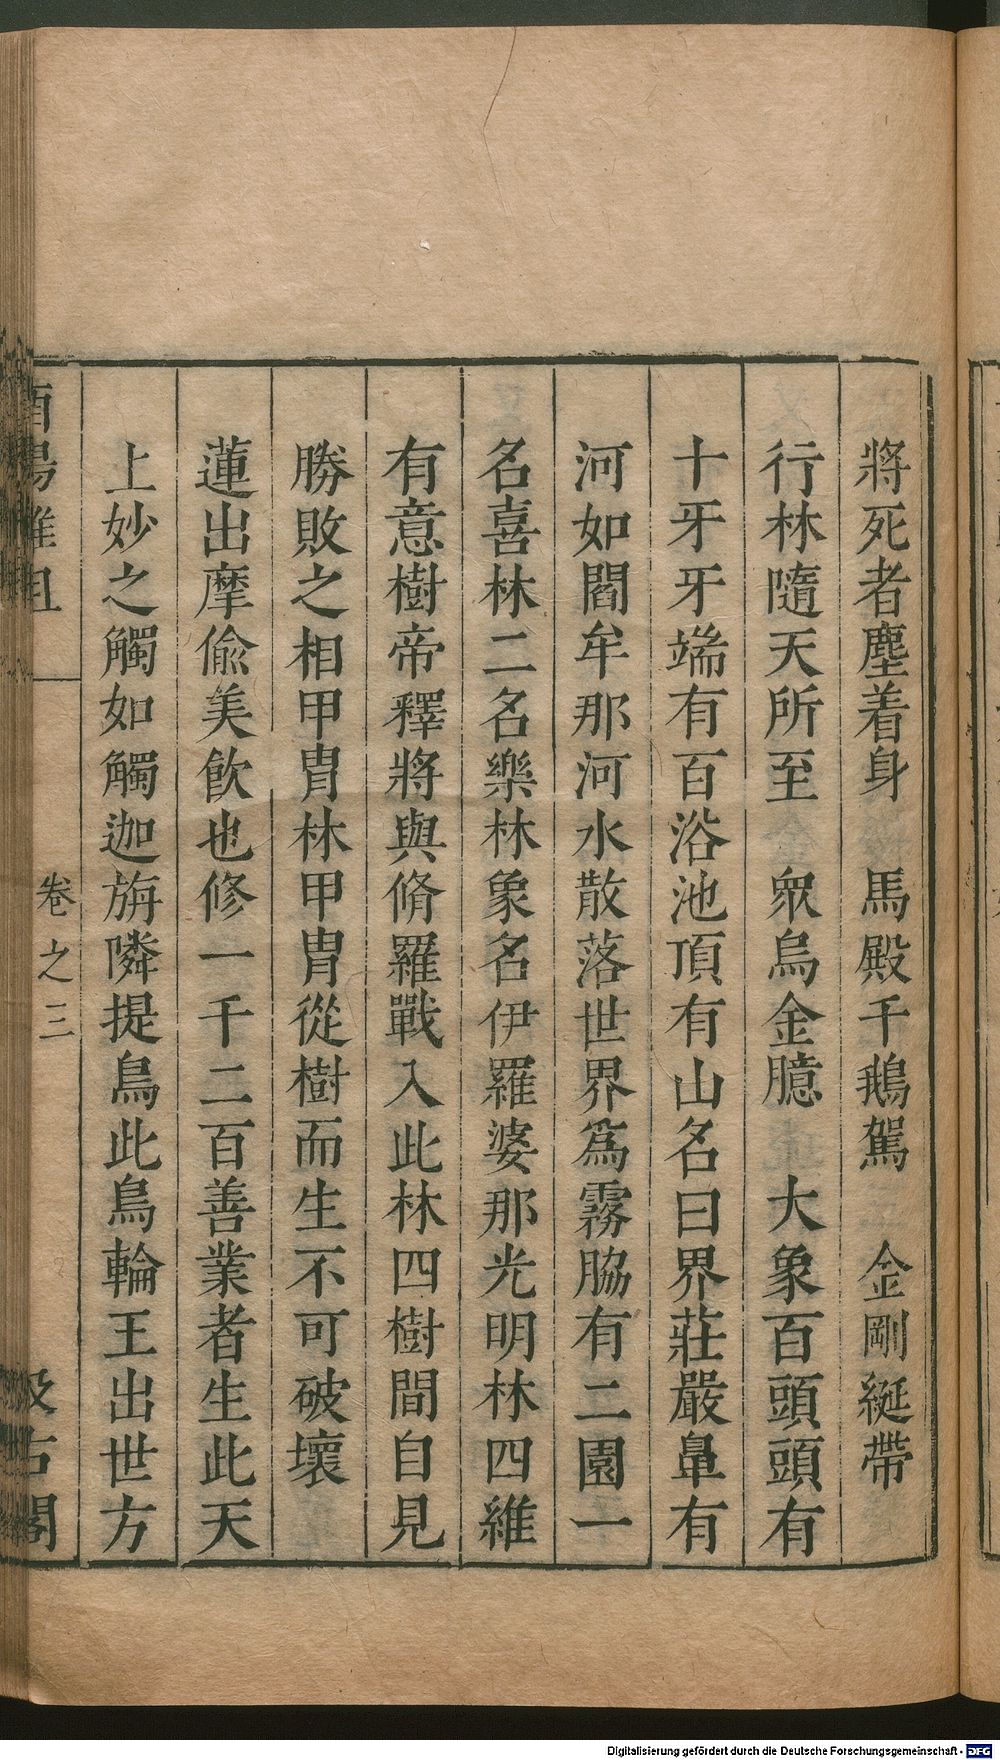 將死者塵着身　馬殿千鵝駕　金剛綖帶
行林隨天所至　衆鳥金臆　大象百頭頭有
十牙牙端有百浴池頂有山名曰界莊嚴鼻有
河如閻牟那河水散落世界爲霧脇有二園一
名喜林二名樂林象名伊羅婆那光明林四維
有意樹帝釋將與脩羅戰入此林四樹間自見
勝敗之相甲冑林甲冑從樹而生不可破壞
蓮出摩偷美飲也修一千二百善業者生此天
上妙之觸如觸迦旃隣提鳥此鳥輪王出世方
酉陽雜俎
卷之三
汲古閣
Digitalisierung gefördert durch die Deutsche Forschungsgemeinschaft - DFG